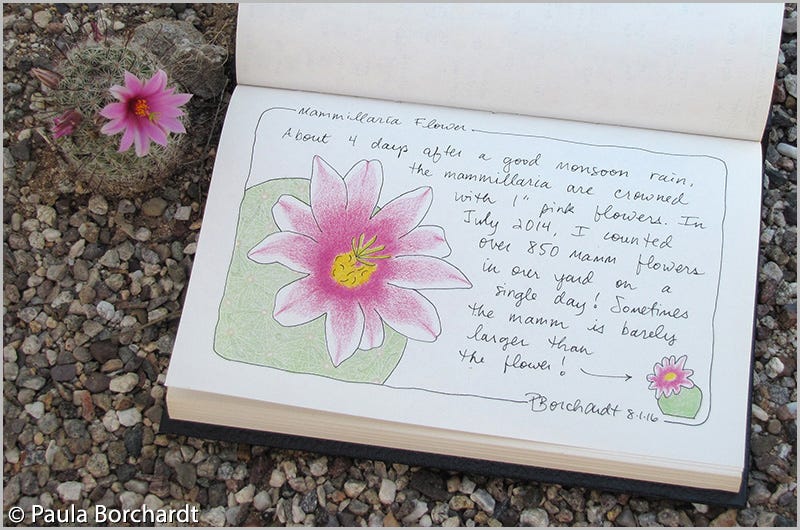 Mammillaria Flower
About 4 days after a good monsoon rain,
the mammillaria are crowned
with 1" pink flowers. In
July 2014, I counted
over 850 mamm flowers
in our yard on a
single day! Sometimes
the mamm is barely
larger than
the flower!
PBorchardt 8.1.16
© Paula Borchardt